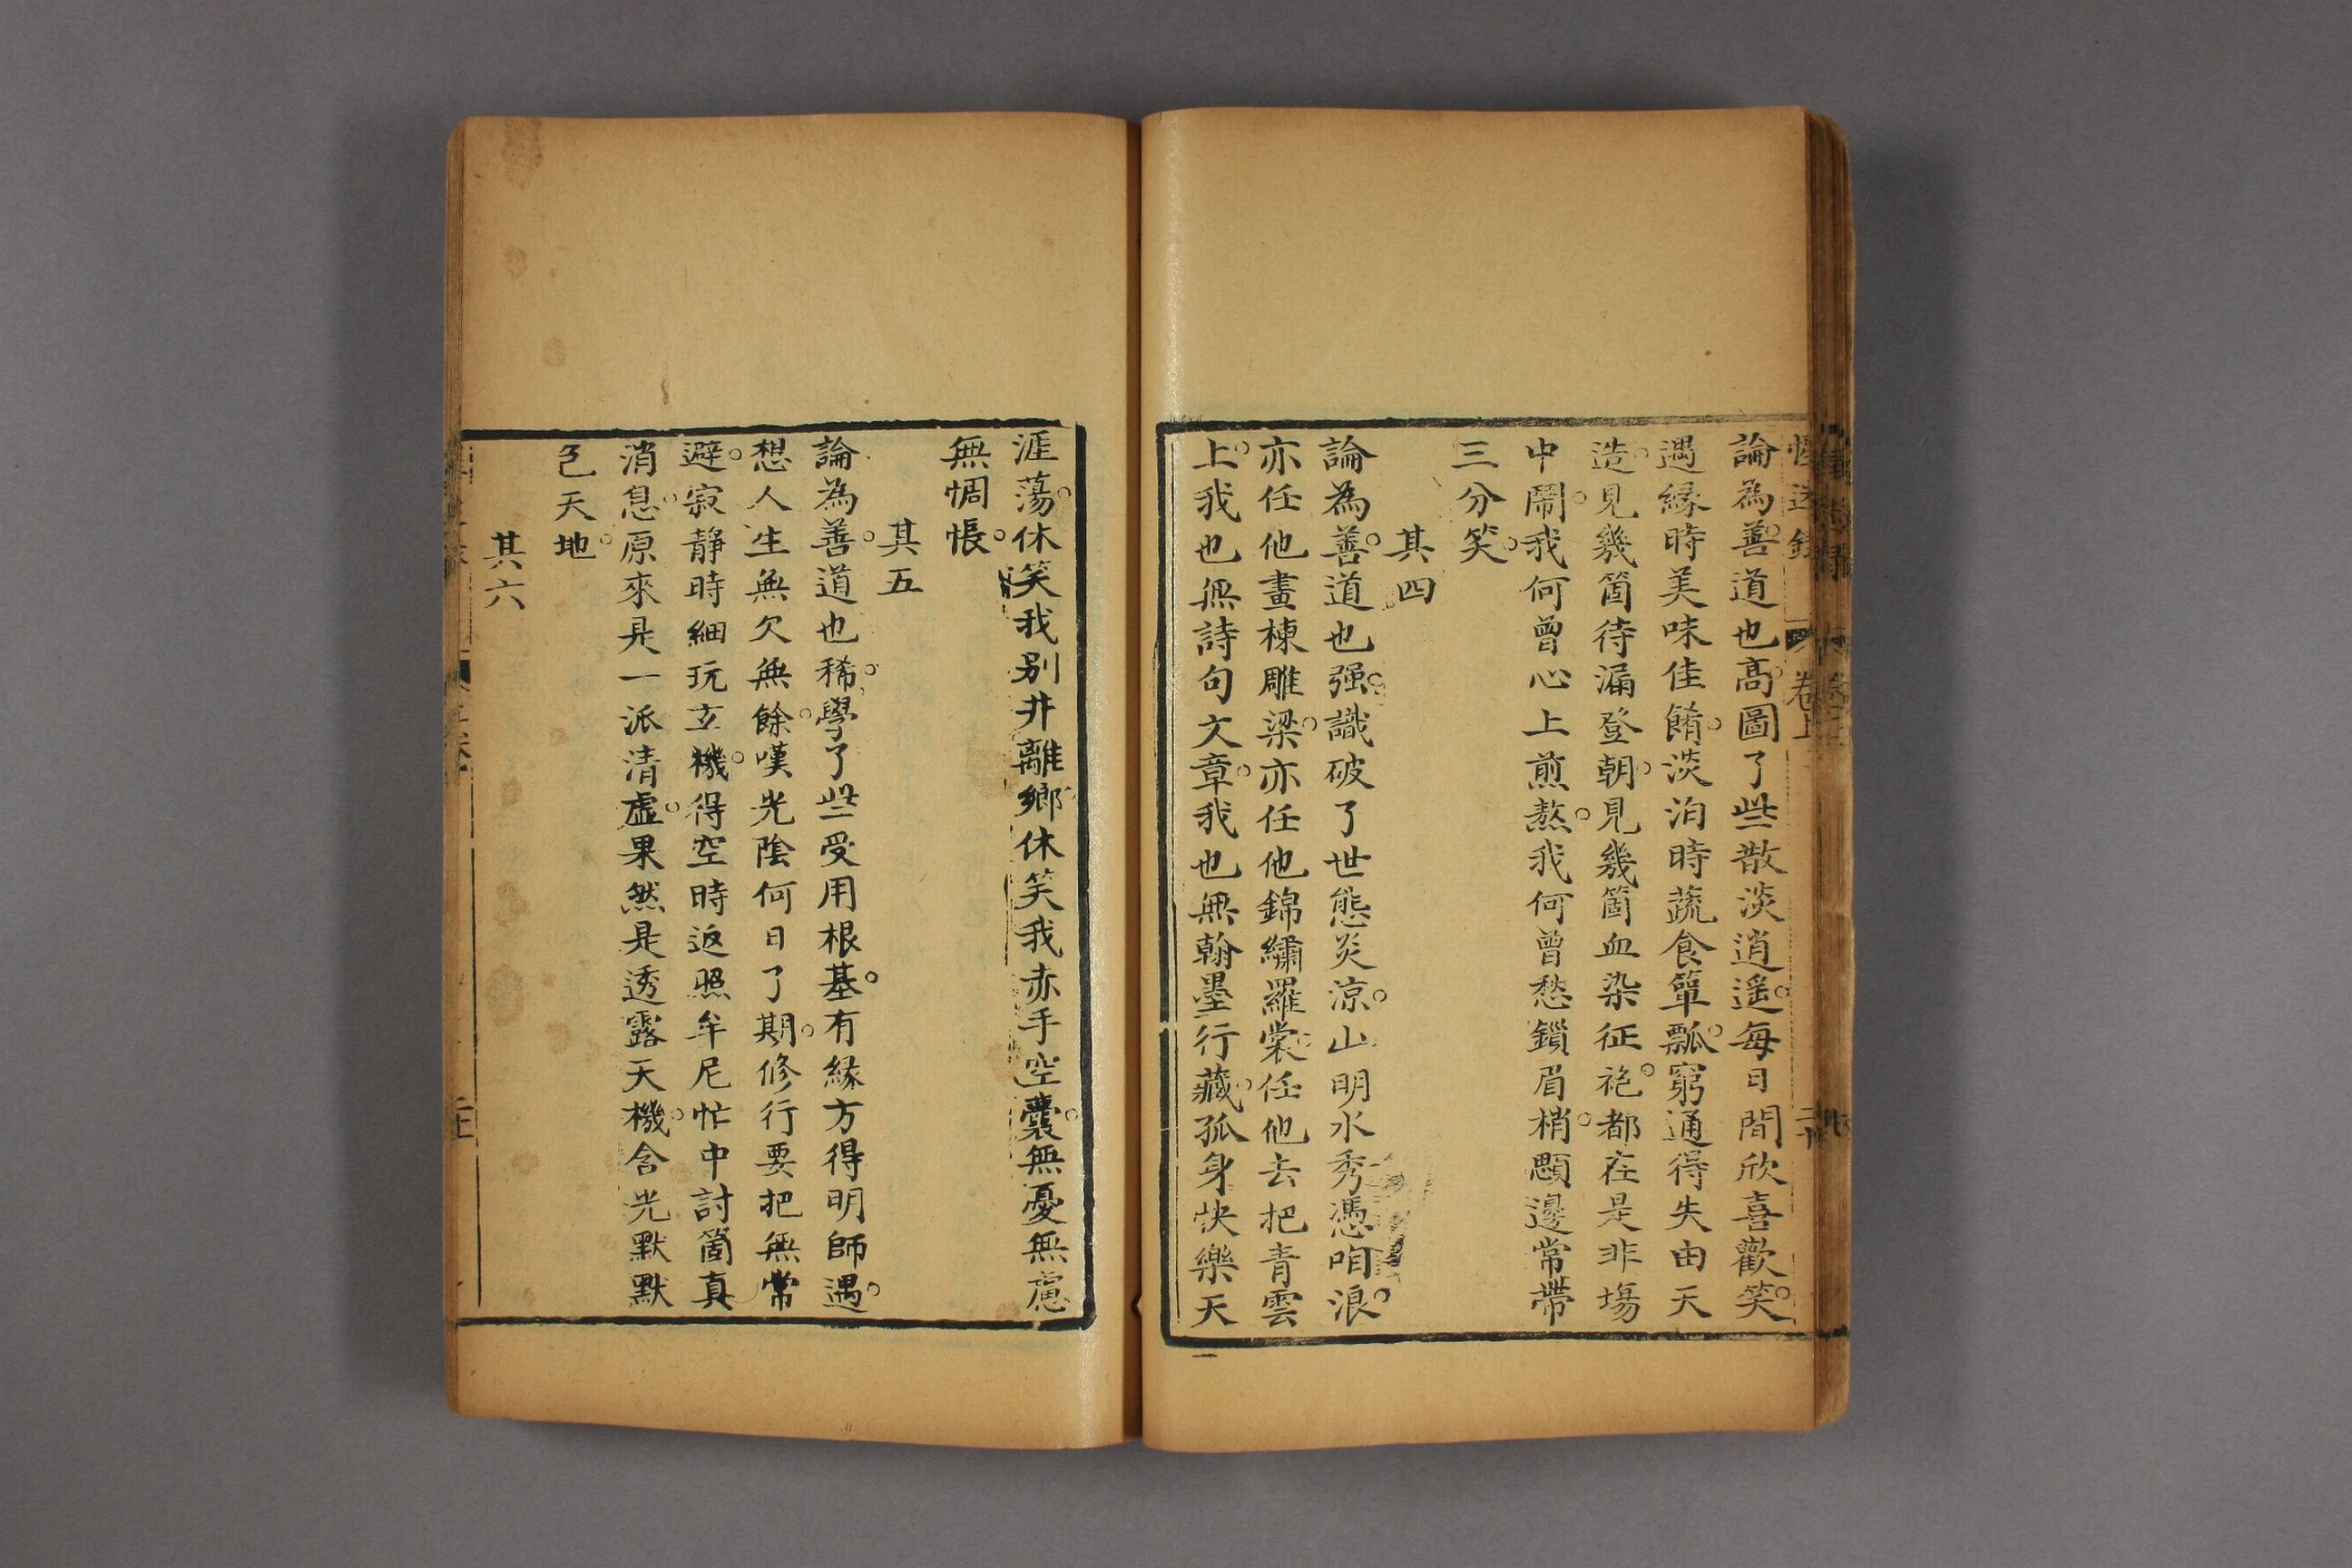 論為善。道也高。圖了些散淡逍遥。每日間欣喜歡笑。
遇緣時美味佳餚。淡泊時蔬食簞瓢。窮通得失由天
造。見幾箇待漏登朝。見幾箇血染征袍。都在是非塲
中鬧。我何曾心上煎熬。我何曾愁鎖眉梢。顋邊常帶
三分笑。
其四
論為善。道也强。識破了世態炎涼。山明水秀憑咱浪。
亦任他畫棟雕梁。亦任他錦繡羅裳。任他去把青雲
上。我也無詩句文章。我也無翰墨行藏。孤身快樂天
涯蕩。休笑我别井離鄉。休笑我赤手空囊。無憂無慮
無惆悵。
其五
論為善。道也稀。學了些受用根基。有緣方得明師遇。
想人生無欠無餘。嘆光陰何日了期。修行要把無常
避。寂静時細玩玄機。得空時返照牟尼。忙中討箇真
消息。原來是一派清虛。果然是透露天機。含光默默
包天地。
其六